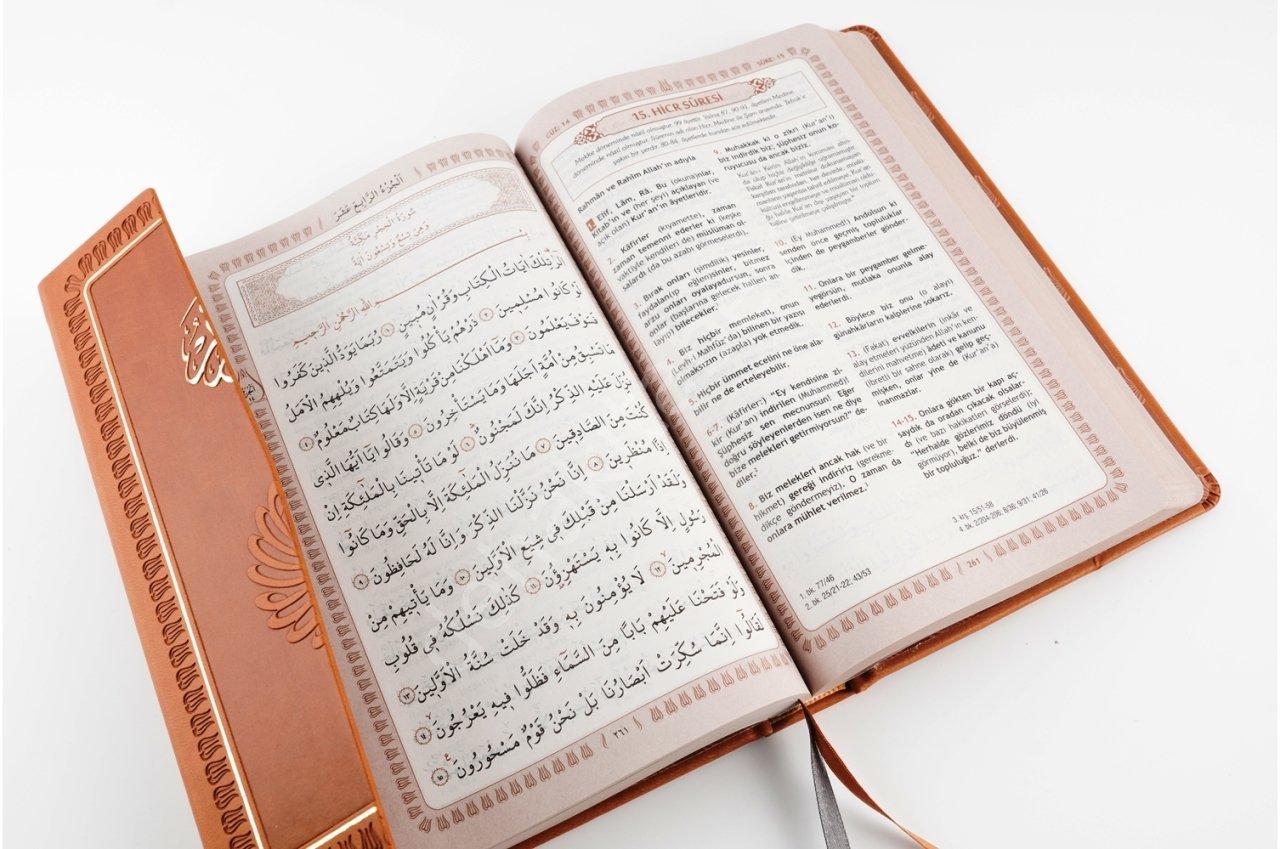 اَلْجُزْءُ الرَّابِعَ عَشَرَ
سُورَةُ الْحِجْرِ مَكِّيَّةٌ
وَهِيَ تِسْعٌ وَتِسْعُونَ اٰيَةً
بِسْمِ اللّٰهِ الرَّحْمٰنِ الرَّحِيمِ
الٓرٰ تِلْكَ اٰيَاتُ الْكِتَابِ وَقُرْاٰنٍ مُبِينٍ ١ رُبَمَا يَوَدُّ الَّذِينَ كَفَرُوا
لَوْ كَانُوا مُسْلِمِينَ ٢ ذَرْهُمْ يَأْكُلُوا وَيَتَمَتَّعُوا وَيُلْهِهِمُ الْاَمَلُ
فَسَوْفَ يَعْلَمُونَ ٣ وَمَا اَهْلَكْنَا مِنْ قَرْيَةٍ اِلَّا وَلَهَا كِتَابٌ مَعْلُومٌ ٤
مَا تَسْبِقُ مِنْ اُمَّةٍ اَجَلَهَا وَمَا يَسْتَأْخِرُونَ ٥ وَقَالُوا يَا اَيُّهَا الَّذِي
نُزِّلَ عَلَيْهِ الذِّكْرُ اِنَّكَ لَمَجْنُونٌ ٦ لَوْ مَا تَأْتِينَا بِالْمَلٰئِكَةِ اِنْ
كُنْتَ مِنَ الصَّادِقِينَ ٧ مَا نُنَزِّلُ الْمَلٰئِكَةَ اِلَّا بِالْحَقِّ وَمَا كَانُوا
اِذًا مُنْظَرِينَ ٨ اِنَّا نَحْنُ نَزَّلْنَا الذِّكْرَ وَاِنَّا لَهُ لَحَافِظُونَ ٩
وَلَقَدْ اَرْسَلْنَا مِنْ قَبْلِكَ فِي شِيَعِ الْاَوَّلِينَ ١٠ وَمَا يَأْتِيهِمْ مِنْ
رَسُولٍ اِلَّا كَانُوا بِهِ يَسْتَهْزِؤُنَ ١١ كَذٰلِكَ نَسْلُكُهُ فِي قُلُوبِ
الْمُجْرِمِينَ ١٢ لَا يُؤْمِنُونَ بِهِ وَقَدْ خَلَتْ سُنَّةُ الْاَوَّلِينَ ١٣
وَلَوْ فَتَحْنَا عَلَيْهِمْ بَابًا مِنَ السَّمَاءِ فَظَلُّوا فِيهِ يَعْرُجُونَ ١٤
لَقَالُوا اِنَّمَا سُكِّرَتْ اَبْصَارُنَا بَلْ نَحْنُ قَوْمٌ مَسْحُورُونَ ١٥
٢٦١
CÜZ: 14
SÛRE: 15
15. HİCR SÛRESİ
Mekke döneminde nâzil olmuştur. 99 âyettir. Yalnız 87, 90-91. âyetleri Medine
döneminde nâzil olmuştur. Sûrenin adı olan Hicr, Medine ile Şam arasında, Tebük'e
yakın bir yerdir. 80-84. âyetlerde bundan söz edilmektedir.
Rahmân ve Rahîm Allah'ın adıyla
1. Elif, Lâm, Râ. Bu (okuna)nlar,
kitab'ın ve (her şeyi) açıklayan (ve
açık olan) Kur'an'ın âyetleridir.
2. Kâfirler (kıyamette), zaman
zaman temenni ederler ki (keşke
vaktiyle kendileri de) müslüman ol-
salardı (da bu azabı görmeselerdi).
3. Bırak onları (şimdilik) yesinler,
faydalan(ıp eğlen)sinler, bitmez
arzu onları oyalayadursun, sonra
onlar (başlarına gelecek halleri an-
layıp) bilecekler.
4. Biz hiçbir memleketi, onun
(Levh-i Mahfûz'da) bilinen bir yazısı
olmaksızın (azapla) yok etmedik.
5. Hiçbir ümmet ecelini ne öne ala-
bilir ne de erteleyebilir.
6-7. (Kâfirler:) "Ey kendisine zi-
kir (Kur'an) indirilen (Muhammed)!
Şüphesiz sen mecnunsun! Eğer
doğru söyleyenlerden isen ne diye
bize melekleri getirmiyorsun?" de-
diler.
8. Biz melekleri ancak hak (ve bir
hikmet) gereği indiririz (gerekme-
dikçe göndermeyiz). O zaman da
onlara mühlet verilmez.
9. Muhakkak ki o zikri (Kur'ân'ı)
biz indirdik biz; şüphesiz onun ko-
ruyucusu da ancak biziz.
10. (Ey Muhammed!) Andolsun ki
senden önce geçmiş topluluklar
içinden de peygamberler gönder-
dik.
11. Onlara bir peygamber gelme-
yegörsün, mutlaka onunla alay
ederlerdi.
12. Böylece biz onu (o alayı)
günahkârların kalplerine sokarız.
13. (Fakat) evvelkilerin (inkâr ve
alay etmeleri yüzünden Allah'ın ken-
dilerini mahvetme) âdeti ve kanunu
(ibretli bir sahne olarak) gelip geç-
mişken, onlar yine de (Kur'ân'a)
inanmazlar.
14-15. Onlara gökten bir kapı aç-
saydık da oradan çıkacak olsalar-
dı (ve bazı hakikatleri görselerdi);
"Herhalde gözlerimiz döndü (iyi
görmüyor), belki de biz büyülenmiş
bir topluluğuz." derlerdi.
1. bk. 77/46
2. bk. 25/21-22; 43/53
3. krş. 15/51-58
4. bk. 2/204-206; 8/36; 9/31; 41/26
261